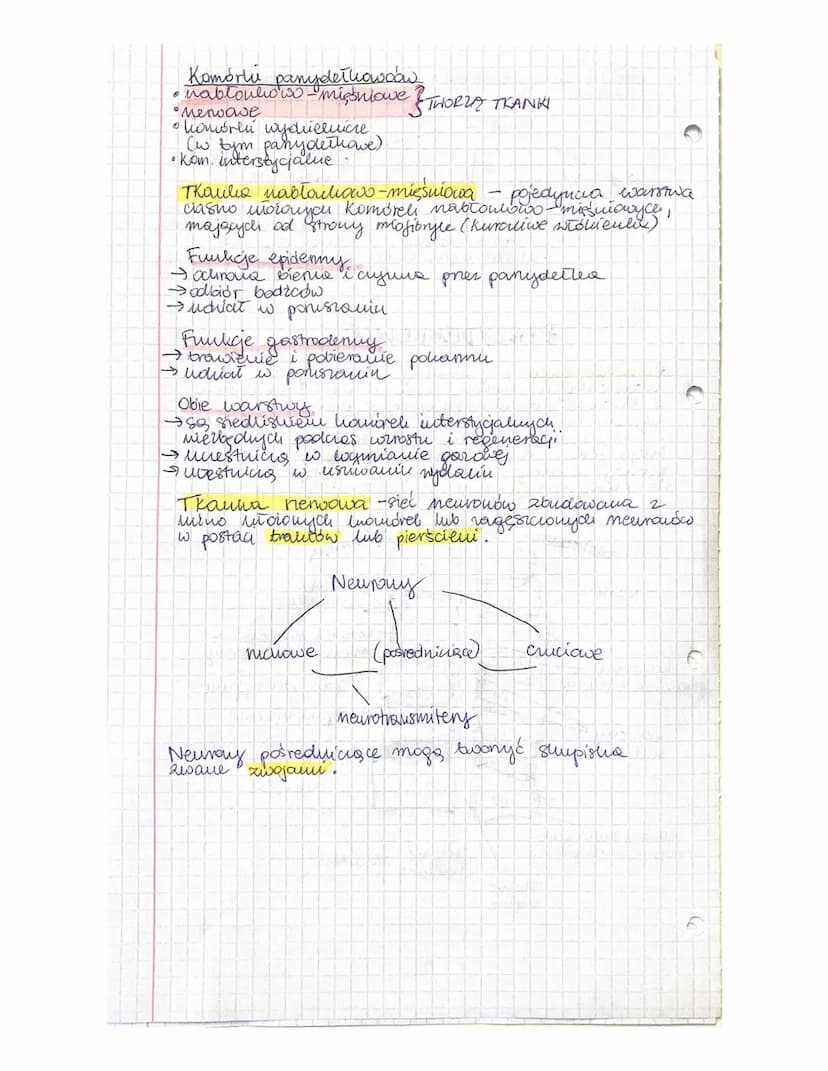 Komórki parzydełkowców
• nabłonkowo-mięśniowe
• nerwowe
} TWORZĄ TKANKI
• komórki wydzielnicze
(w tym parzydełkowe)
• Kom. interstycjalne
Tkanka nabłonkowo-mięśniowa - pojedyncza warstwa
ciasno ułożonych komórek nabłonkowo-mięśniowych,
mających od strony miofibryle (kurczliwe włókienka)
Funkcje epidermy
→ ochrona bierna i czynna przez parzydełka
→ odbiór bodźców
→ udział w poruszaniu
Funkcje gastrodermy
→ trawienie i pobieranie pokarmu
→ udział w poruszaniu
Obie warstwy
→ są siedliskiem komórek interstycjalnych
niezbędnych podczas wzrostu i regeneracji
→ uczestniczą w wymianie gazowej
→ uczestniczą w usuwaniu wydalin
Tkanka nerwowa - sieć neuronów zbudowana z
luźno ułożonych komórek lub zagęszczonych neuronów
w postaci traktów lub pierścieni.
Neurony
ruchowe (pośredniczące) czuciowe
neurotransmitery
Neurony pośredniczące mogą tworzyć skupiska
zwane zwojami.